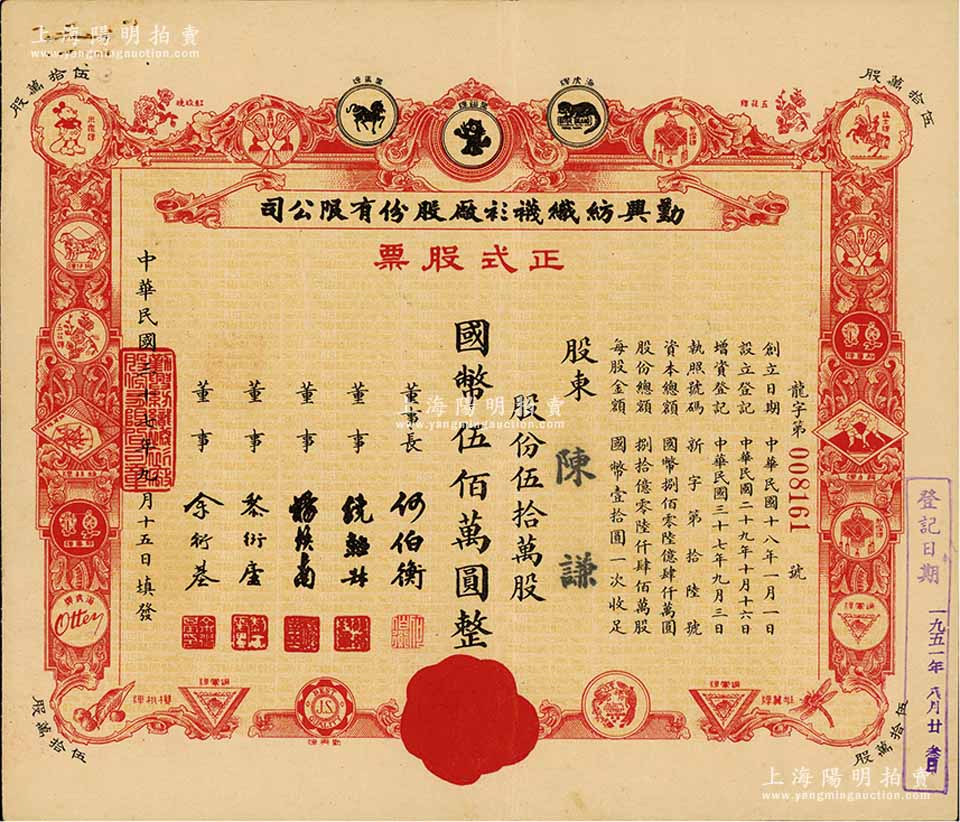 上海陽明拍賣
www.yangmingauction.com
上海陽明拍賣
www.yangmingauction.com
伍拾萬股
伍拾萬股
勤興紡織襪衫廠股份有限公司
正式股票
龍字第008161號
創立日期 中華民國十八年一月一日
設立登記 中華民國二十九年十月十六日
增資登記 中華民國三十七年九月三日
執照號碼 新字第拾陸號
資本總額 國幣捌佰零陸億肆仟萬圓
股份總額 捌拾億零陸仟肆佰萬股
每股金額 國幣壹拾圓一次收足
股東 陳謙
股份伍拾萬股
國幣伍佰萬圓整
董事長 何伯衡
董事
董事
董事 黎衍廬
董事 余衍基
中華民國三十七年九月十五日填發
登記日期 一九五一年八月廿叁日
上海陽明拍賣
www.yangmingauction.com
Otter
BEST
QUALITY
伍拾萬股
伍拾萬股
上海陽明拍賣
www.yangmingauction.com